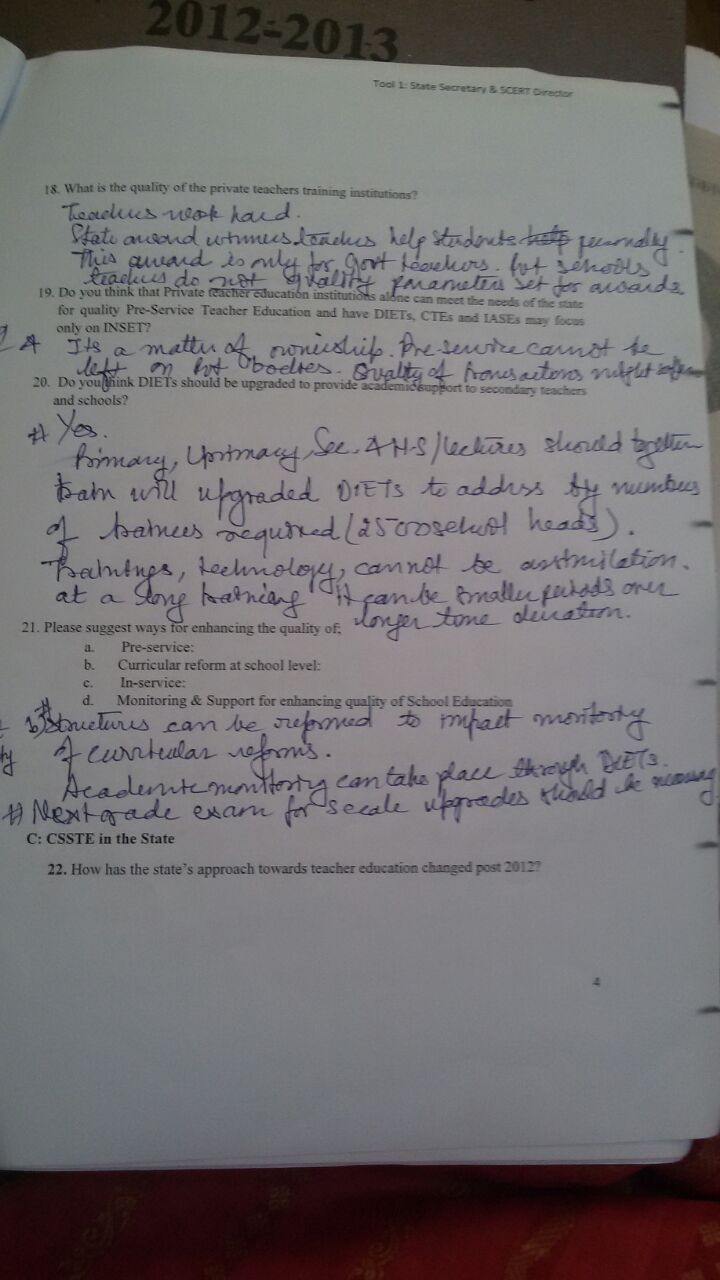 2012-2013
Tool 1: State Secretary & SCERT Director
18. What is the quality of the private teachers training institutions?
Teachers work hard.
State award winners teachers help students help personally.
This award is only for Govt teachers. Pvt schools
teachers do not quality parameters set for awards
19. Do you think that Private teacher education institutions alone can meet the needs of the state
for quality Pre-Service Teacher Education and have DIETs, CTEs and IASEs may focus
only on INSET?
# Its a matter of ownership. Pre-service cannot be
left on Pvt bodies. Quality of transactions might
20. Do you think DIETs should be upgraded to provide academic support to secondary teachers
and schools?
# Yes.
Primary, Uprimary, Sec. & H.S/lectures should together
train will upgraded DIETs to address by numbers
of trainees required (2500 school heads).
Trainings, technology, cannot be assimilation.
at a long training It can be smaller periods over
longer time duration.
21. Please suggest ways for enhancing the quality of:
a. Pre-service:
b. Curricular reform at school level:
c. In-service:
d. Monitoring & Support for enhancing quality of School Education
# b) Structures can be reformed to impact monitory
of curricular reforms.
Academic monitoring can take place through DIETs.
# Next grade exam for scale upgrades should be
C: CSSTE in the State
22. How has the state's approach towards teacher education changed post 2012?
4